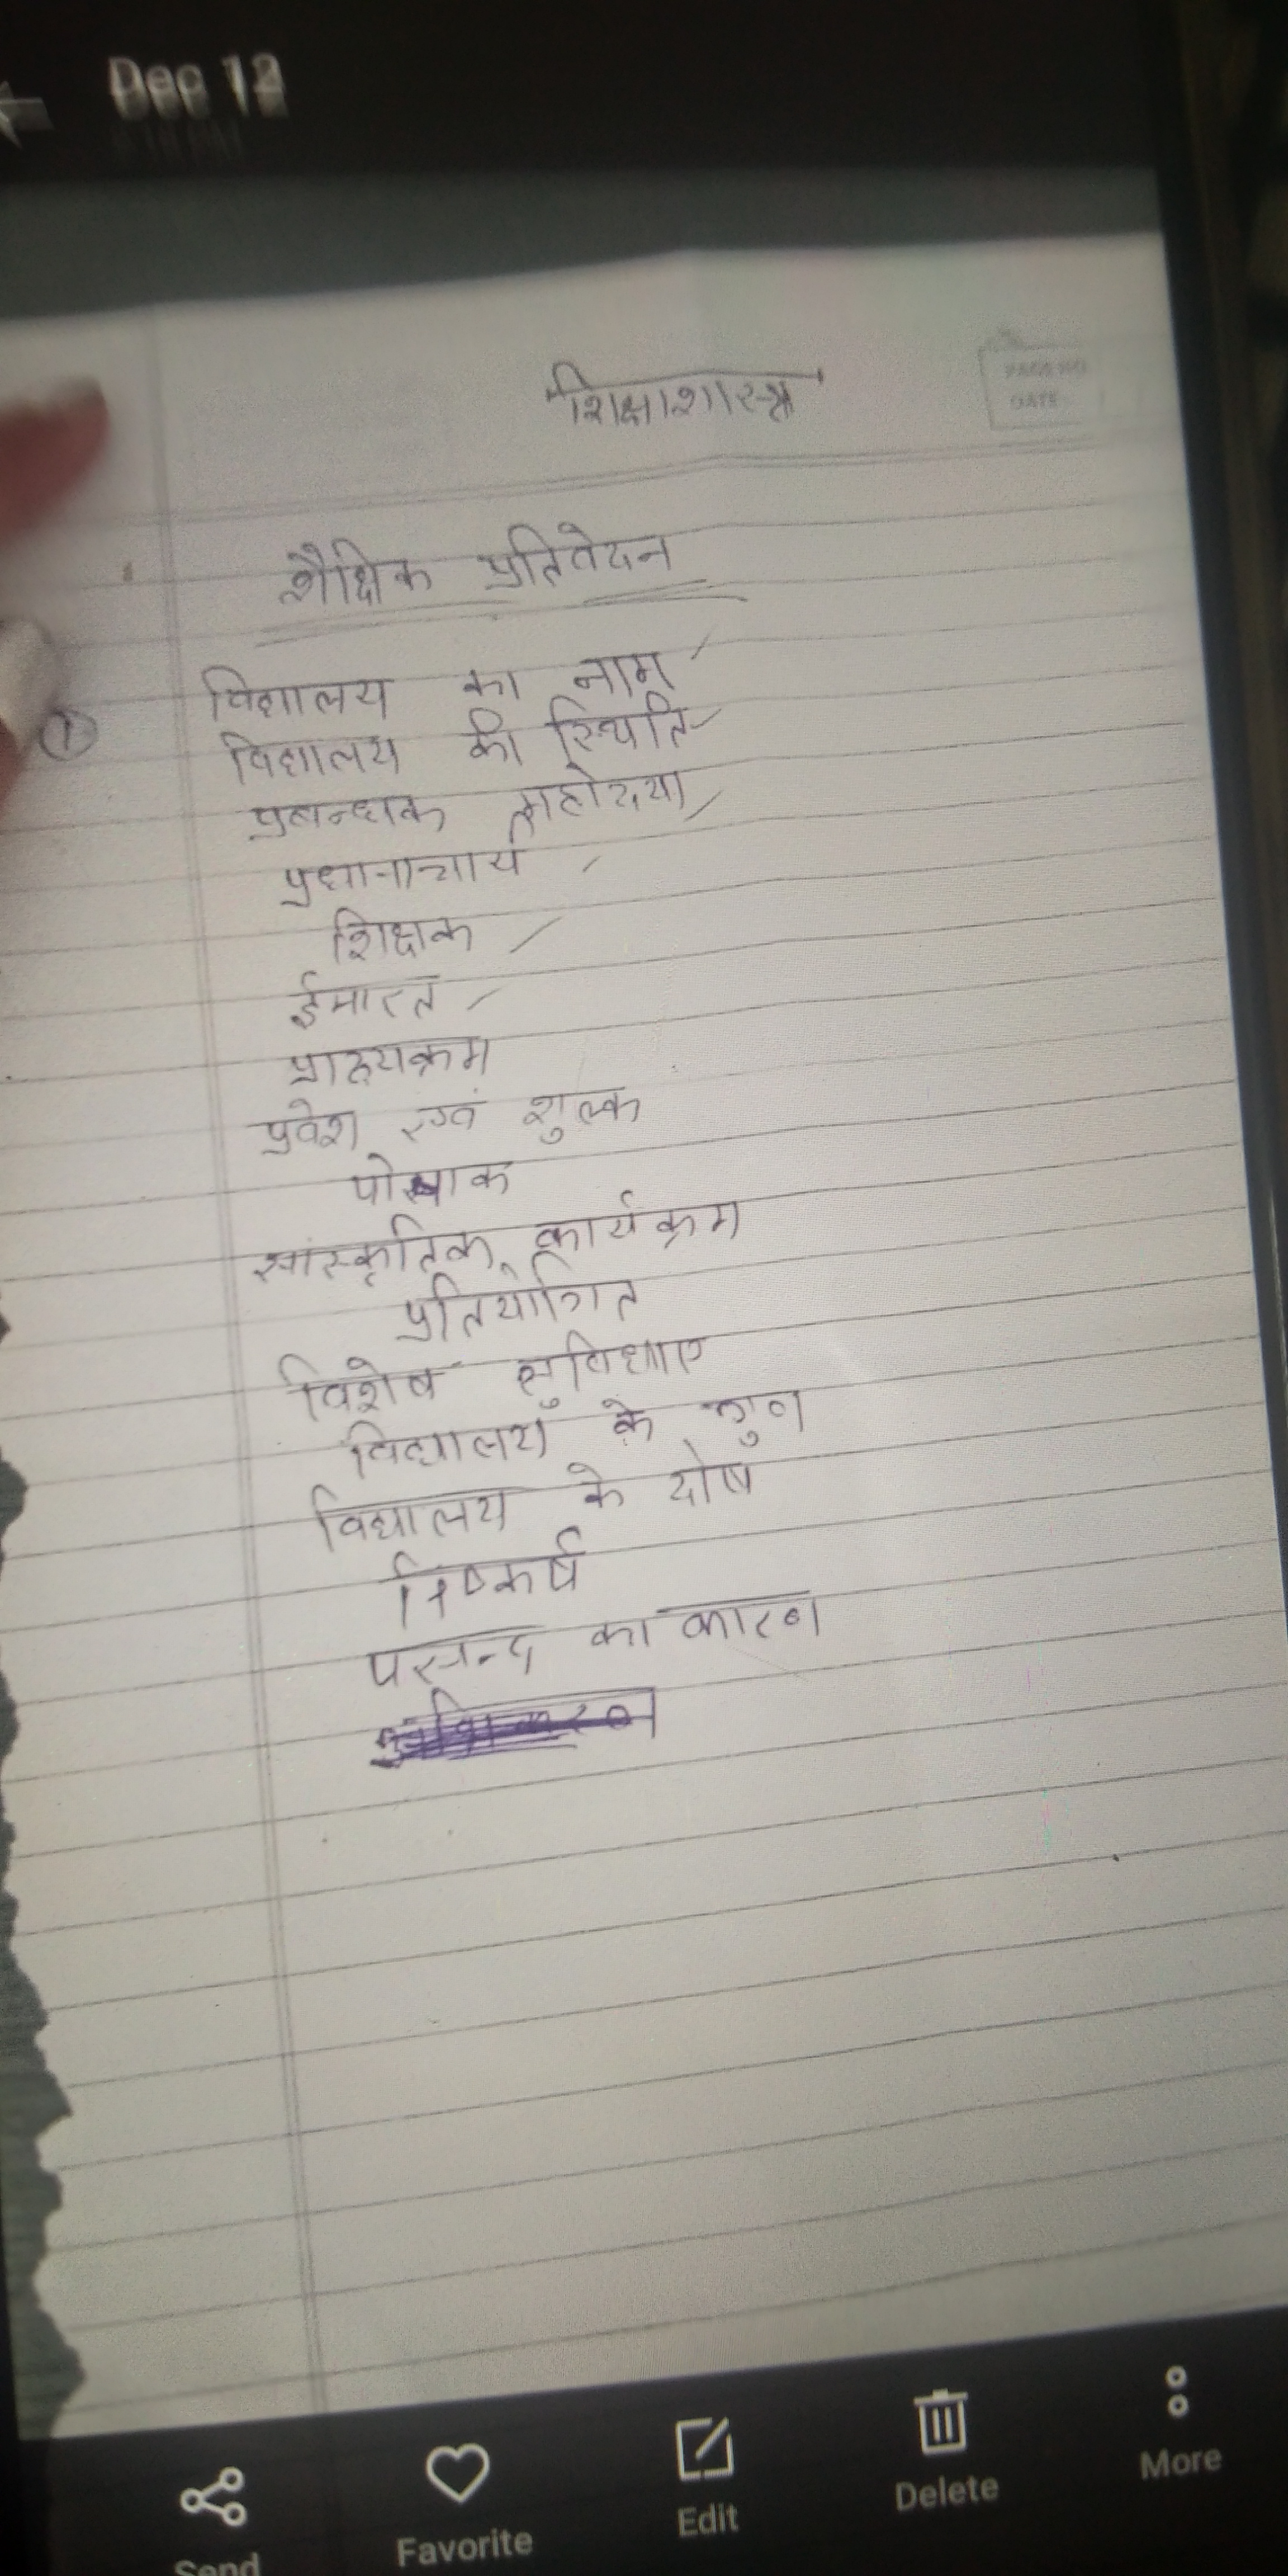 Dec 12
शिक्षाशास्त्र
PAGE NO
DATE
शैक्षिक प्रतिवेदन
विद्यालय का नाम
① विद्यालय की स्थिति
प्रबन्धक महोदया
प्रधानाचार्य
शिक्षक
ईमारत
पाठ्यक्रम
प्रवेश एवं शुल्क
पोषाक
सांस्कृतिक कार्यक्रम
प्रतियोगित
विशेष सुविधाए
विद्यालय के गुण
विद्यालय के दोष
निष्कर्ष
पसन्द का कारण
Send
Favorite
Edit
Delete
More